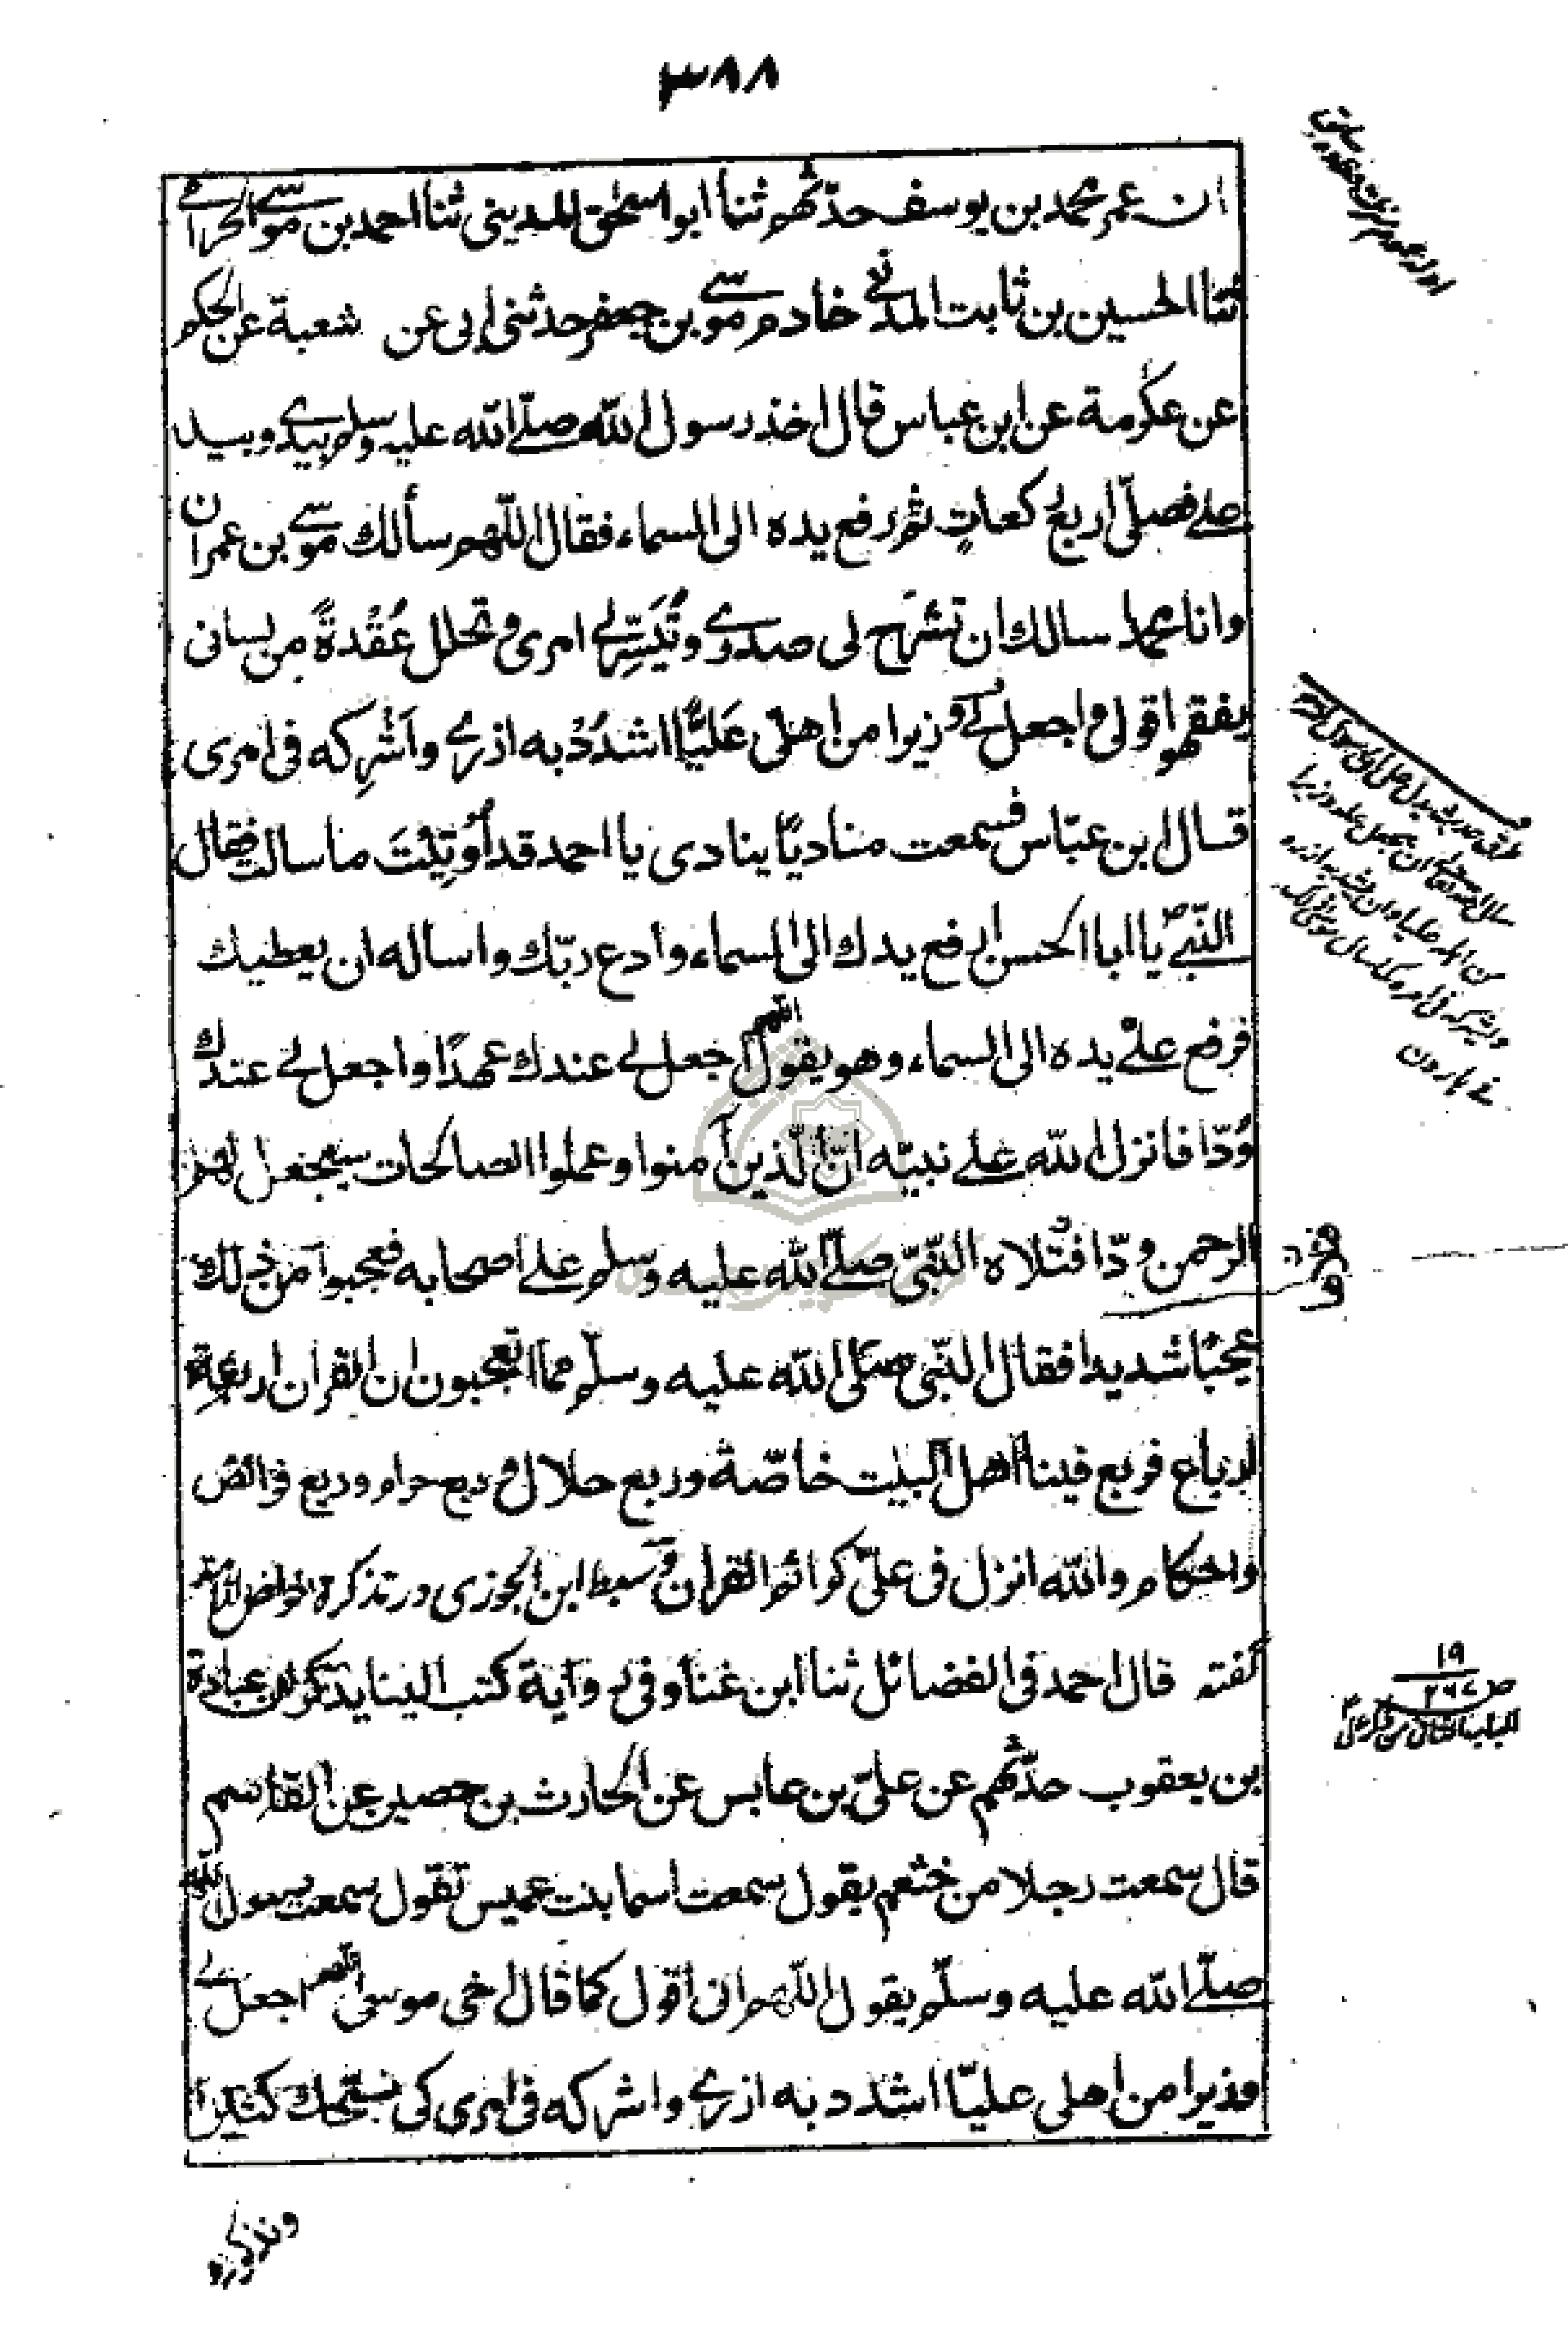 ٣٨٨
ان عمر محمد بن يوسف حدثهم ثنا ابو اسحق المديني ثنا احمد بن موسے الحرامے
ثنا الحسين بن ثابت المدنے خادم موسے بن جعفر حدثنى ابى عن شعبة عن الحكم
عن عكرمة عن ابن عباس قال اخذ رسول الله صلّے الله عليه وسلم بيدے وبيد
علے فصلّى اربع ركعاتٍ ثم رفع يده الى السماء فقال اللّهم سألك موسے بن عمران
وانا محمد سالك ان تشرح لى صدرے وتُيَسِّر لے امرى وتحلل عُقْدةً من لسانى
يفقهوا قولى واجعل لے وزيرا من اهلى عَليًّا اشدُدْ به ازرے واَشْرِكه فى امرى
قال ابن عبّاس فسمعت مناديًا ينادى يا احمد قد اُوتِيْتَ ما سالت فقال
النّبے يا ابا الحسن ارفع يدك الى السماء وادع ربّك واساله ان يعطيك
فرفع علے يده الى السماء وهو يقول اللّهم اجعل لے عندك عهدًا واجعل لے عندك
وُدّا فانزل الله علے نبيّه انّ الّذين آمنوا وعملوا الصالحات سيجعل لهم
الرحمن ودّا فتلاه النّبىّ صلّے الله عليه وسلم علے اصحابه فعجبوا من ذلك
عجبًا شديدا فقال النّبى صلى الله عليه وسلّم مما تعجبون ان القرآن اربعة
ارباع فربع فينا اهل البيت خاصّة وربع حلال وربع حرام وربع فرائض
واحكام والله انزل فى علىّ كرائم القرآن وسبط ابن الجوزى در تذكرة خواص الامة
گفته قال احمد فى الفضائل ثنا ابن غنام وفى رواية كتب الينا يذكر ان عبادة
بن يعقوب حدّثهم عن علىّ بن عابس عن الحارث بن حصين عن القاسم
قال سمعت رجلا من خثعم يقول سمعت اسما بنت عميس تقول سمعت رسول الله
صلّے الله عليه وسلّم يقول اللّهم انى اقول كما قال اخى موسى اللّهم اجعل لے
وزيرا من اهلى عليّا اشدد به ازرے واشركه فى امرى كى نسبّحك كثيرا
١٩
ص ٢٩٧
الباب الثانى من ذكر على
ونذكرك